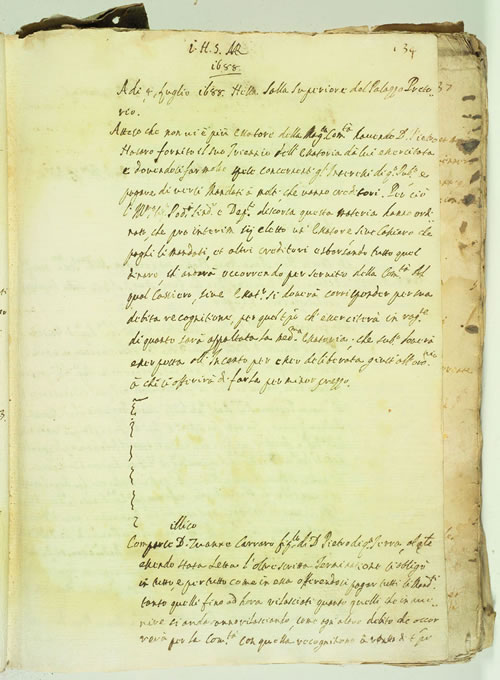 i. H. S. AR
134
1688
A dì 4. Luglio 1688. Nella Salla Superiore del Palazzo Preto-
reo.
Atteso che non vi è più Esatore della Mag.ca Com.tà havendo D. Pietro
fornito il suo Triennio dell'Esatoria da lui esercitata
e dovendosi far molte spese concernenti gl'interessi di q.o Pub.o e
pagare diversi Mandati à molti che vanno creditori. Per ciò
l'Ill.mo Pod.à Sind.i e Dep.i discorsa questa materia hanno ordi-
nato che pro interim sij eletto un' Esatore sive Cassiero che
paghi li mandati, et altri creditori esborsando tutto quel
dinaro ch'anderà occorrendo per servitio della Com.tà Al
qual Cassiero, sive Esat.e si doverà corrisponder per sua
debita recognitione, per quel ch'eserciterà in
di quanto sarà appaltata la med.ma Esatoria. che sub.o doverà
esser posta all'Incanto per esser deliberata giust'all'ord.rio
à chi s'offerirà di farla per minor prezzo.
illico
Comparse D. Zuanne Carraro f. di D. Pietro di q.a Terra, al q.le
essendo stata letta l'oltrescritta Terminat.ne si obligò
in tutto, e per tutto come in essa offerendosi pagar tutti li Mand.ti
tanto quelli fino ad hora rilasciati quanto quelli che in
si anderanno rilasciando, come ogn'altro debito che occor
rerà per la Com.tà con quella recognitione à